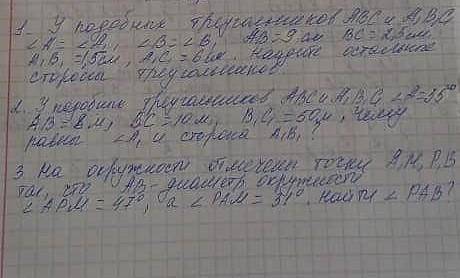 1. У подобных треугольников ABC и A₁B₁C₁
∠A = ∠A₁, ∠B = ∠B₁ AB = 9 см BC = 2,5 см,
A₁B₁ = 1,5 см, A₁C₁ = 6 см. Найдите остальные
стороны треугольников.
2. У подобных треугольников ABC и A₁B₁C₁ ∠A = 35°
AB = 8 м, BC = 10 м, B₁C₁ = 50 м, чему
равны ∠A₁ и сторона A₁B₁?
3. На окружности отмечены точки A, M, P, B
так, что AB - диаметр окружности
∠APM = 47°, а ∠PAM = 31°. Найти ∠PAB?